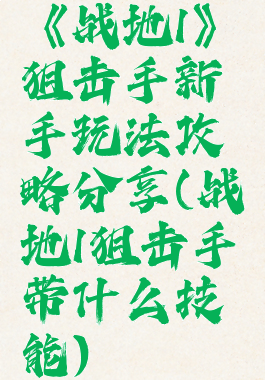 《战地1》
狙击手新
手玩法攻
略分享(战
地1狙击手
带什么技
能)